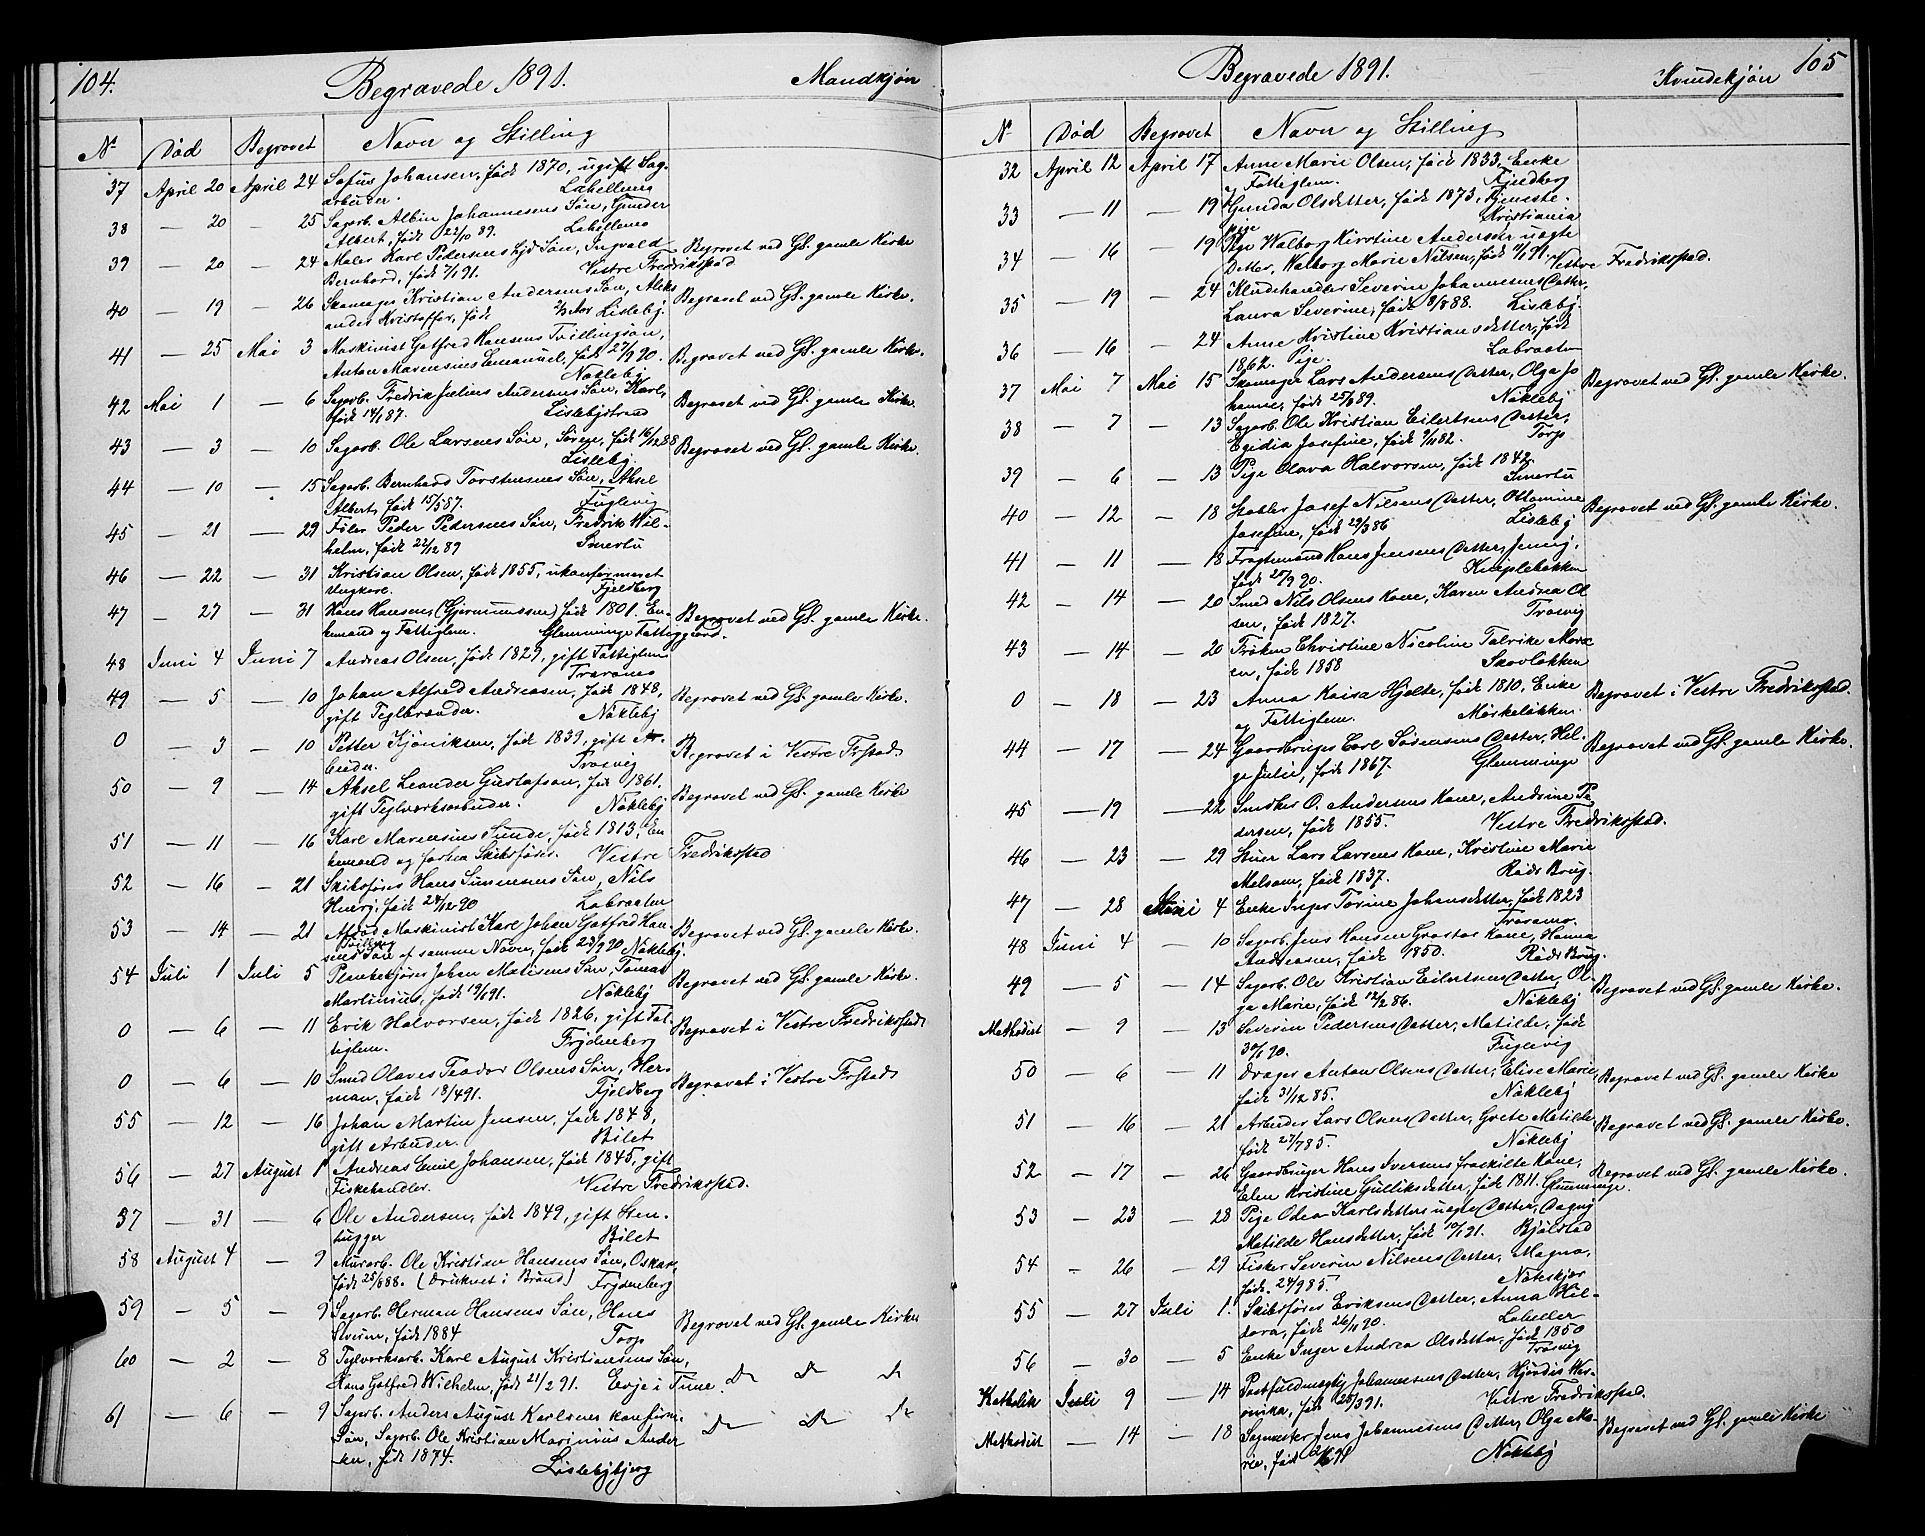 104.
Begravede 1891.
Mandkjøn
No Død Begravet Navn og Stilling
37 April 20 April 24 Sofus Johansen, født 1870, ugift Sag-
arbeider.
38 — 20 — 25 Sagarb. Albin Johannesens Søn, Gunder
Albert, født 22/10 89.
39 — 20 — 24 Maler Karl Pedersens Søn, Ingvald Begravet ved Gl. gamle Kirke
Bernhard, født 7/1 91. Vestre Fredriksstad
40 — 19 — 26 Skomager Kristian Andersens Søn, Aleks Begravet ved Gl. gamle Kirke.
ander Kristoffer, født Lisleby.
41 — 25 Mai 3 Maskinist Gotfred Hansens Tvillingsøn,
Anton Marensius Emanuel, født 27/9 90. Begravet ved Gl. gamle Kirke.
Nøkleby
42 Mai 1 — 6 Sagarb. Fredrik Julius Andersens Søn, Karl,
født 14/1 87. Lislebystrand Begravet ved Gl. gamle Kirke.
43 — 3 — 10 Sagarb. Ole Larsens Søn, Søren, født 16/12 88 Begravet ved Gl. gamle Kirke.
Lisleby.
44 — 10 — 15 Sagarb. Bernhard Torstensens Søn, Aksel
Albert, født 15/5 87. Fuglevig
45 — 21 — 29 Føler Peder Pedersens Søn, Fredrik Wil-
helm, født 22/12 89 Smertu
46 — 22 — 31 Kristian Olsen, født 1855, ukonfirmeret
Ungkarl. Fjeldberg
47 — 27 — 31 Hans Hansen, (Gjermundsen) født 1801. En- Begravet ved Gl. gamle Kirke.
kemand og Fattiglem. Glemminge Fattiggaard.
48 Juni 4 Juni 7 Andreas Olsen, født 1829, gift Fattiglem
Traramo
49 — 5 — 10 Johan Alfred Andreasen, født 1848, Begravet ved Gl. gamle Kirke.
gift Teglbrænder. Nøkleby
0 — 3 — 10 Petter Kjøniksen, født 1839, gift Ar- Begravet i Vestre Frstad
beider. Trosvig
50 — 9 — 14 Aksel Leander Gustafson, født 1861. Begravet ved Gl. gamle Kirke
gift Teglverksarbeider. Nøkleby
51 — 11 — 16 Karl Marensius Sunde, født 1813, En
kemand og forhen Skibsfører. Vestre Fredriksstad
52 — 16 — 21 Skibsfører Hans Simensens Søn, Nils
Henry, født 24/12 90 Labraaten
53 — 14 — 21 Afdød Maskinist Karl Johan Gotfred Han- Begravet ved Gl. gamle Kirke.
Tvilling
sens Søn af samme Navn, født 23/9 90. Nøkleby.
54 Juli 1 Juli 5 Plankekjører Johan Matisens Søn, Tomas Begravet ved Gl. gamle Kirke.
Martinius, født 19/1 91. Nøkleby
0 — 6 — 11 Erik Halvorsen, født 1826, gift Fat- Begravet i Vestre Fredriksstad
tiglem. Frydenberg
0 — 6 — 10 Smed Olaves Teodor Olsens Søn, Her- Begravet i Vestre Frstad
man, født 18/4 91. Fjeldberg
55 — 12 — 16 Johan Martin Jensen, født 1848,
gift Arbeider. Bilet
56 — 27 August 1 Andreas Emil Johansen, født 1845, gift
Fiskehandler. Vestre Fredriksstad.
57 — 31 — 6 Ole Andersen, født 1849, gift Sten-
hugger Bilet
58 August 4 — 9 Murarb. Ole Kristian Hansens Søn, Oskar,
født 25/8 88. (Druknet i Brønd) Frydenberg
59 — 5 — 9 Sagarb. Herman Hansens Søn, Hans Begravet ved Gl. gamle Kirke
Severin, født 1884 Torp
60 — 2 — 8 Teglverksarb. Karl August Kristiansens Søn,
Hans Gotfred Wilhelm, født 21/2 91. Evje i Tune. Do Do Do
61 — 6 — 9 Sagarb. Anders August Karlsens konfirm. Do Do Do
Søn, Sagarb. Ole Kristian Marinius Ander
sen, født 1874. Lislebybjerg
105
Begravede 1891.
Kvindekjøn
No Død Begravet Navn og Stilling
32 April 12 April 17 Anne Marie Olsen, født 1833, Enke
og Fattiglem. Fjeldberg
33 — 11 — 19 Gunda Olsdatter, født 1873, Tjeneste-
pige Kristiania
34 — 16 — 19 Pige Walborg Kirstine Andersens uægte
Datter, Walborg Marie Nilsen, født 11/1 91. Vestre Fredriksstad.
35 — 19 — 24 Kludehandler Severin Johannesens Datter,
Laura Severine, født 8/8 88. Lisleby.
36 — 16 — 24 Anne Kristine Kristiansdatter, født
1862. Pige. Labraaten
37 Mai 7 Mai 15 Skomager Lars Andersens Datter, Olga Jo Begravet ved Gl. gamle Kirke.
hanne, født 25/8 89. Nøkleby
38 — 7 — 13 Sagarb. Ole Kristian Eilertsens Datter,
Egidia Josefine, født 9/11 82. Torp
39 — 6 — 13 Pige Olava Halvorsen, født 1842.
Smertu
40 — 12 — 18 Stabler Josef Nilsens Datter, Ottomine Begravet ved Gl. gamle Kirke.
Josefine, født 29/3 86 Lisleby
41 — 11 — 18 Fragtemand Hans Jensens Datter, Jenny,
født 27/9 90. Kniplebakken
42 — 14 — 20 Smed Nils Olsens Kone, Karen Andrea Ol
sen, født 1827. Trosvig
43 — 14 — 20 Frøken Christine Nicoline Talvike Mors
en, født 1858 Skovløkken
0 — 18 — 23 Anna Kaisa Hjelte, født 1810, Enke Begravet i Vestre Fredriksstad.
og Fattiglem. Møskeløkken.
44 — 17 — 24 Gaardbruger Carl Sørensens Datter, Hel- Begravet ved Gl. gamle Kirke.
ga Julie, født 1867. Glemminge
45 — 19 — 22 Snedker O. Andersens Kone, Andrine Pe
dersen, født 1855. Vestre Fredriksstad.
46 — 23 — 29 Stuer Lars Larsens Kone, Kristine Marie
Melsom, født 1837. Røds Brug.
47 — 28 Juni 4 Enke Inger Torine Johansdatter, født 1823
Traramo.
48 Juni 4 — 10 Sagarb. Jens Hansen Kone, Hanna
Andreasen, født 1850. Røds Brug.
49 — 5 — 14 Sagarb. Ole Kristian Eilertsens Datter, Ol- Begravet ved Gl. gamle Kirke.
ga Marie, født 12/2 86. Nøkleby
Methodist — 9 — 13 Severin Pedersens Datter, Matilde, født
30/1 90. Fuglevig
50 — 6 — 11 Drager Anton Olsens Datter, Elise Marie, Begravet ved Gl. gamle Kirke
født 31/12 85. Nøkleby
51 — 16 — 21 Arbeider Lars Olsens Datter, Grete Matilde, Begravet ved Gl. gamle Kirke.
født 27/7 85. Nøkleby
52 — 17 — 26 Gaardbruger Hans Iversens fraskilte Kone, Begravet ved Gl. gamle Kirke.
Elen Kristine Gulliksdatter, født 1811. Glemminge.
53 — 23 — 28 Pige Odea Karlsdatters uægte Datter, Dagny
Matilde Hansdatter, født 10/1 91. Bjølstad
54 — 26 — 29 Fisker Severin Nilsens Datter, Magna,
født 24/9 85. Nøteskjær
55 — 27 Juli 1. Skibsfører Eriksens Datter, Anna Hil-
dora, født 26/11 90. Labeller
56 — 30 — 5 Enke Inger Andrea Olsdatter, født 1850
Trosvig
Katholik Juli 9 — 14 Postfuldmægtig Johannesens Datter, Hjørdis Wer-
onika, født 25/3 91. Vestre Fredriksstad.
Methodist — 14 — 18 Sagmester Jens Johannesens Datter, Olga Ma- Begravet ved Gl. gamle Kirke
rie, født Nøkleby